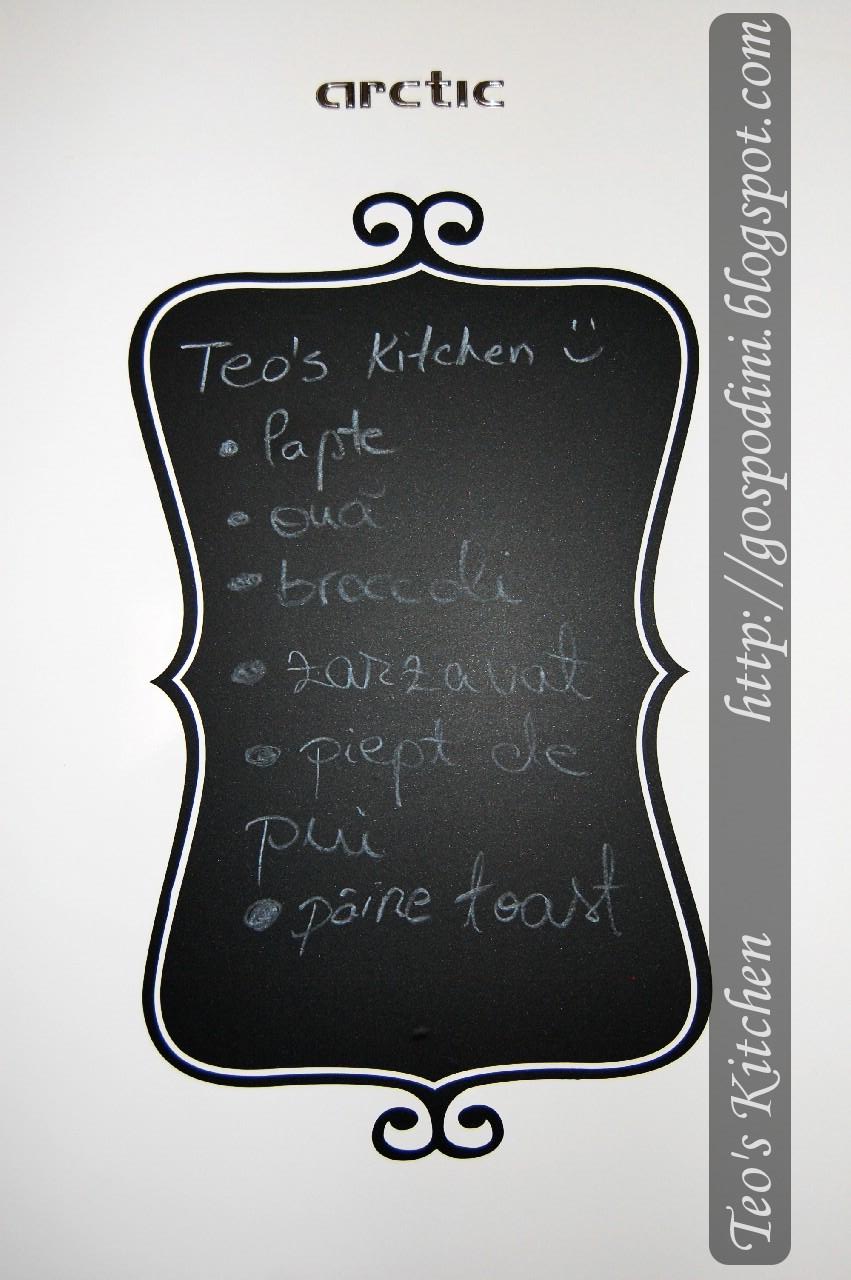 arctic
Teo's Kitchen :)
• lapte
• ouă
• broccoli
• zarzavat
• piept de
pui
• pâine toast
Teo's Kitchen http://gospodini.blogspot.com